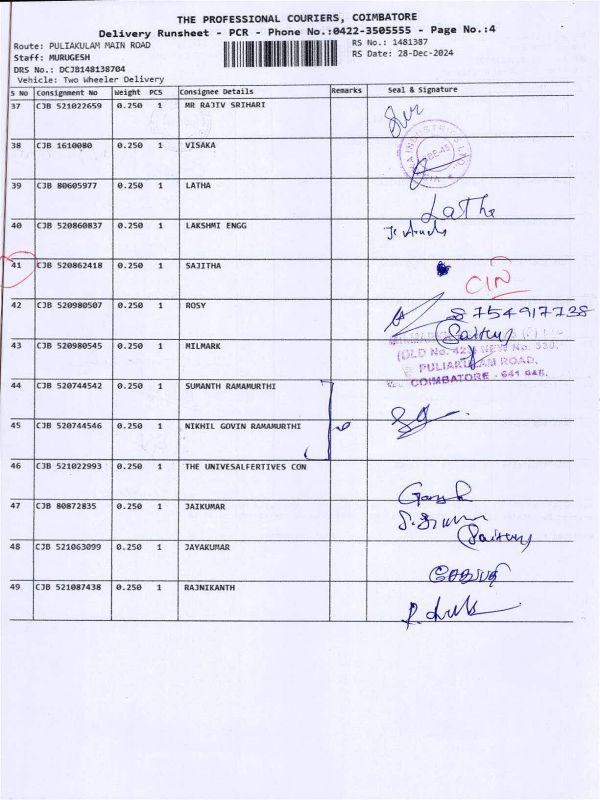 THE PROFESSIONAL COURIERS, COIMBATORE
Delivery Runsheet - PCR - Phone No.:0422-3505555 - Page No.:4
Route: PULIAKULAM MAIN ROAD
RS No.: 1481387
Staff: MURUGESH
RS Date: 28-Dec-2024
DRS No.: DCJB148138704
Vehicle: Two Wheeler Delivery
S No Consignment No Weight PCS Consignee Details Remarks Seal & Signature
37 CJB 521022659 0.250 1 MR RAJIV SRIHARI
38 CJB 1610080 0.250 1 VISAKA
39 CJB 80605977 0.250 1 LATHA
Latha
40 CJB 520860837 0.250 1 LAKSHMI ENGG
41 CJB 520862418 0.250 1 SAJITHA
CIN
42 CJB 520980507 0.250 1 ROSY
8754917738
43 CJB 520980545 0.250 1 MILMARK
(OLD No. 42) NEW No. 330,
PULIAKULAM ROAD,
COIMBATORE - 641 045.
44 CJB 520744542 0.250 1 SUMANTH RAMAMURTHI
45 CJB 520744546 0.250 1 NIKHIL GOVIN RAMAMURTHI
46 CJB 521022993 0.250 1 THE UNIVESALFERTIVES CON
Ganesh
47 CJB 80872835 0.250 1 JAIKUMAR
48 CJB 521063099 0.250 1 JAYAKUMAR
49 CJB 521087438 0.250 1 RAJNIKANTH